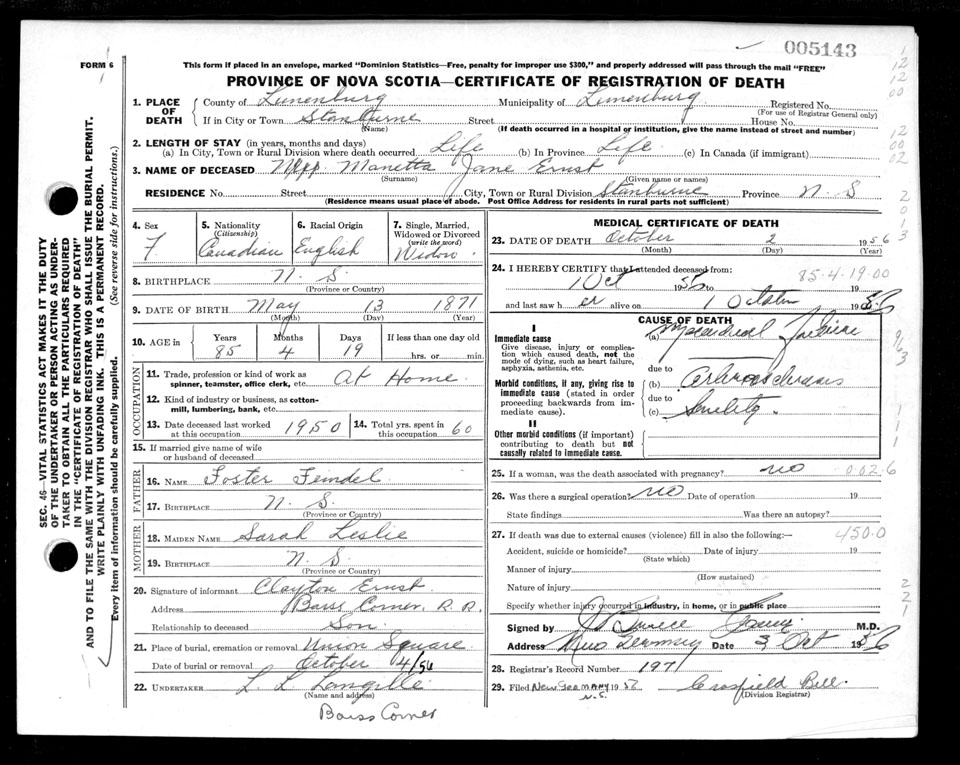 005143
FORM 6
This form if placed in an envelope, marked "Dominion Statistics—Free, penalty for improper use $300," and properly addressed will pass through the mail "FREE"
PROVINCE OF NOVA SCOTIA—CERTIFICATE OF REGISTRATION OF DEATH
1. PLACE OF DEATH { County of Lunenburg Municipality of Lunenburg Registered No.
(For use of Registrar General only)
If in City or Town Stanburne Street House No.
(Name) (If death occurred in a hospital or institution, give the name instead of street and number)
2. LENGTH OF STAY (in years, months and days)
(a) In City, Town or Rural Division where death occurred Life (b) In Province Life (c) In Canada (if immigrant)
3. NAME OF DECEASED Manetta Jane Ernst
(Surname) (Given name or names)
RESIDENCE No. Street City, Town or Rural Division Stanburne Province N. S
(Residence means usual place of abode. Post Office Address for residents in rural parts not sufficient)
4. Sex 5. Nationality 6. Racial Origin 7. Single, Married,
(Citizenship) Widowed or Divorced
(write the word)
F. Canadian English Widow.
8. BIRTHPLACE N. S
(Province or Country)
9. DATE OF BIRTH May 13 1871
(Month) (Day) (Year)
10. AGE IN Years Months Days If less than one day old
85 4 19 hrs. or min.
OCCUPATION
11. Trade, profession or kind of work as At Home.
spinner, teamster, office clerk, etc.
12. Kind of industry or business, as cotton-
mill, lumbering, bank, etc.
13. Date deceased last worked at this occupation 1950 14. Total yrs. spent in this occupation 60
15. If married give name of wife
or husband of deceased
FATHER
16. NAME Foster Feindel
17. BIRTHPLACE N. S.
(Province or Country)
MOTHER
18. MAIDEN NAME Sarah Leslie
19. BIRTHPLACE N. S
(Province or Country)
20. Signature of informant Clayton Ernst
Address Barss Corner, R. R.
Relationship to deceased Son
21. Place of burial, cremation or removal Union Square
Date of burial or removal October 4/56
22. UNDERTAKER L. L Langille
(Name and address)
Barss Corner
MEDICAL CERTIFICATE OF DEATH
23. DATE OF DEATH October 2 1956
(Month) (Day) (Year)
24. I HEREBY CERTIFY that I attended deceased from:
85-4-19-00
1 Oct 1956 to 19
and last saw h er alive on 1 October 1956
CAUSE OF DEATH
I
Immediate cause (a) Myocardial Failure
Give disease, injury or complication which caused death, not the mode of dying, such as heart failure, asphyxia, asthenia, etc.
due to
Morbid conditions, if any, giving rise to immediate cause (stated in order proceeding backwards from immediate cause). (b) Arteriosclerosis
due to
(c) Senility.
II
Other morbid conditions (if important) contributing to death but not causally related to immediate cause.
25. If a woman, was the death associated with pregnancy? no 002-6
26. Was there a surgical operation? no Date of operation 19
State findings Was there an autopsy?
27. If death was due to external causes (violence) fill in also the following:— 450.0
Accident, suicide or homicide? Date of injury 19
(State which)
Manner of injury
(How sustained)
Nature of injury
Specify whether injury occurred in industry, in home, or in public place
Signed by M.D.
Address New Germany Date 3 Oct 1956
28. Registrar's Record Number 1971
29. Filed New Germany N.S. 1956 Crosfield Bell.
(Division Registrar)
SEC. 46—VITAL STATISTICS ACT MAKES IT THE DUTY
OF THE UNDERTAKER OR PERSON ACTING AS UNDER-
TAKER TO OBTAIN ALL THE PARTICULARS REQUIRED
IN THE "CERTIFICATE OF REGISTRATION OF DEATH"
AND TO FILE THE SAME WITH THE DIVISION REGISTRAR WHO SHALL ISSUE THE BURIAL PERMIT.
WRITE PLAINLY WITH UNFADING INK. THIS IS A PERMANENT RECORD.
Every item of information should be carefully supplied. (See reverse side for instructions.)